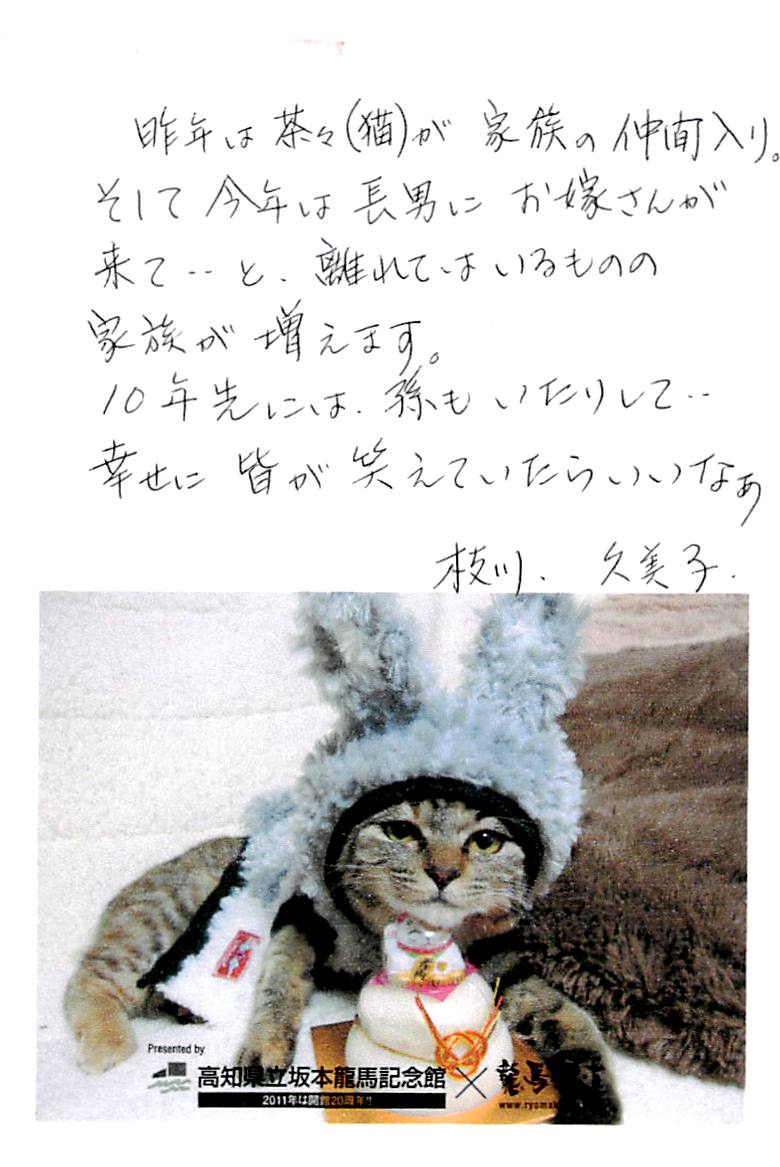 昨年は茶々(猫)が 家族の仲間入り。
そして今年は長男に お嫁さんが
来て‥と、離れてはいるものの
家族が増えます。
10年先には、孫もいたりして‥
幸せに 皆が 笑えていたらいいなぁ
枝川、久美子.
Presented by
高知県立坂本龍馬記念館×龍馬
2011年は開館20周年!!
www.ryoma